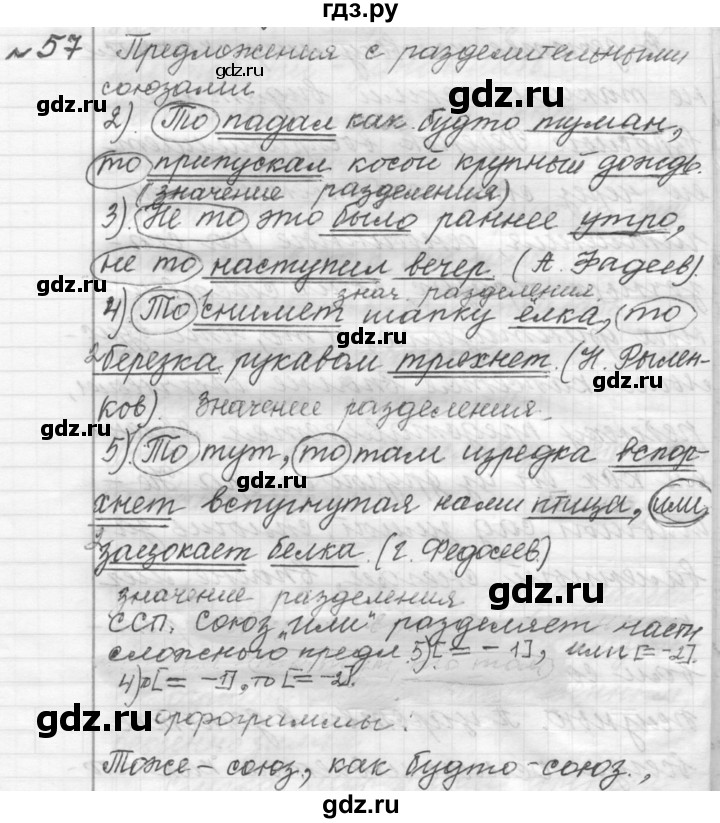 гдз.ру
№57 Предложения с разделительными
союзами
2). То падал как будто туман,
то припускал косой крупный дождь.
(значение разделения)
3). Не то это было раннее утро,
не то наступил вечер. (А. Фадеев).
знач. разделения.
4) То снимет шапку ёлка, то
березка рукавом тряхнет. (Н. Рылен-
ков). Значение разделения.
5). То тут, то там изредка вспор-
хнет вспугнутая нами птица, или
зацокает белка. (Г. Федосеев.)
значение разделения
ССП. Союз "или" разделяет части
сложного предл. 5) [= - 1], или [= - 2].
4) [= - 1], то [= - 2].
орфограммы:
Тоже - союз., как будто - союз.,
gdz.ru
gdz.ru
gdz.ru
gdz.ru
gdz.ru
gdz.ru
gdz.ru
gdz.ru
gdz.ru
gdz.ru
gdz.ru